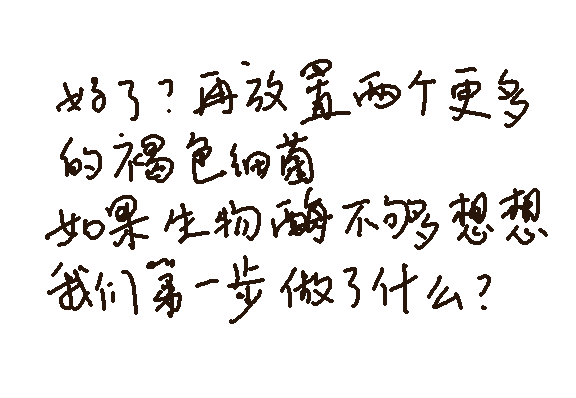 好了？再放置两个更多
的褐色细菌
如果生物酶不够多想想
我们第一步做了什么？